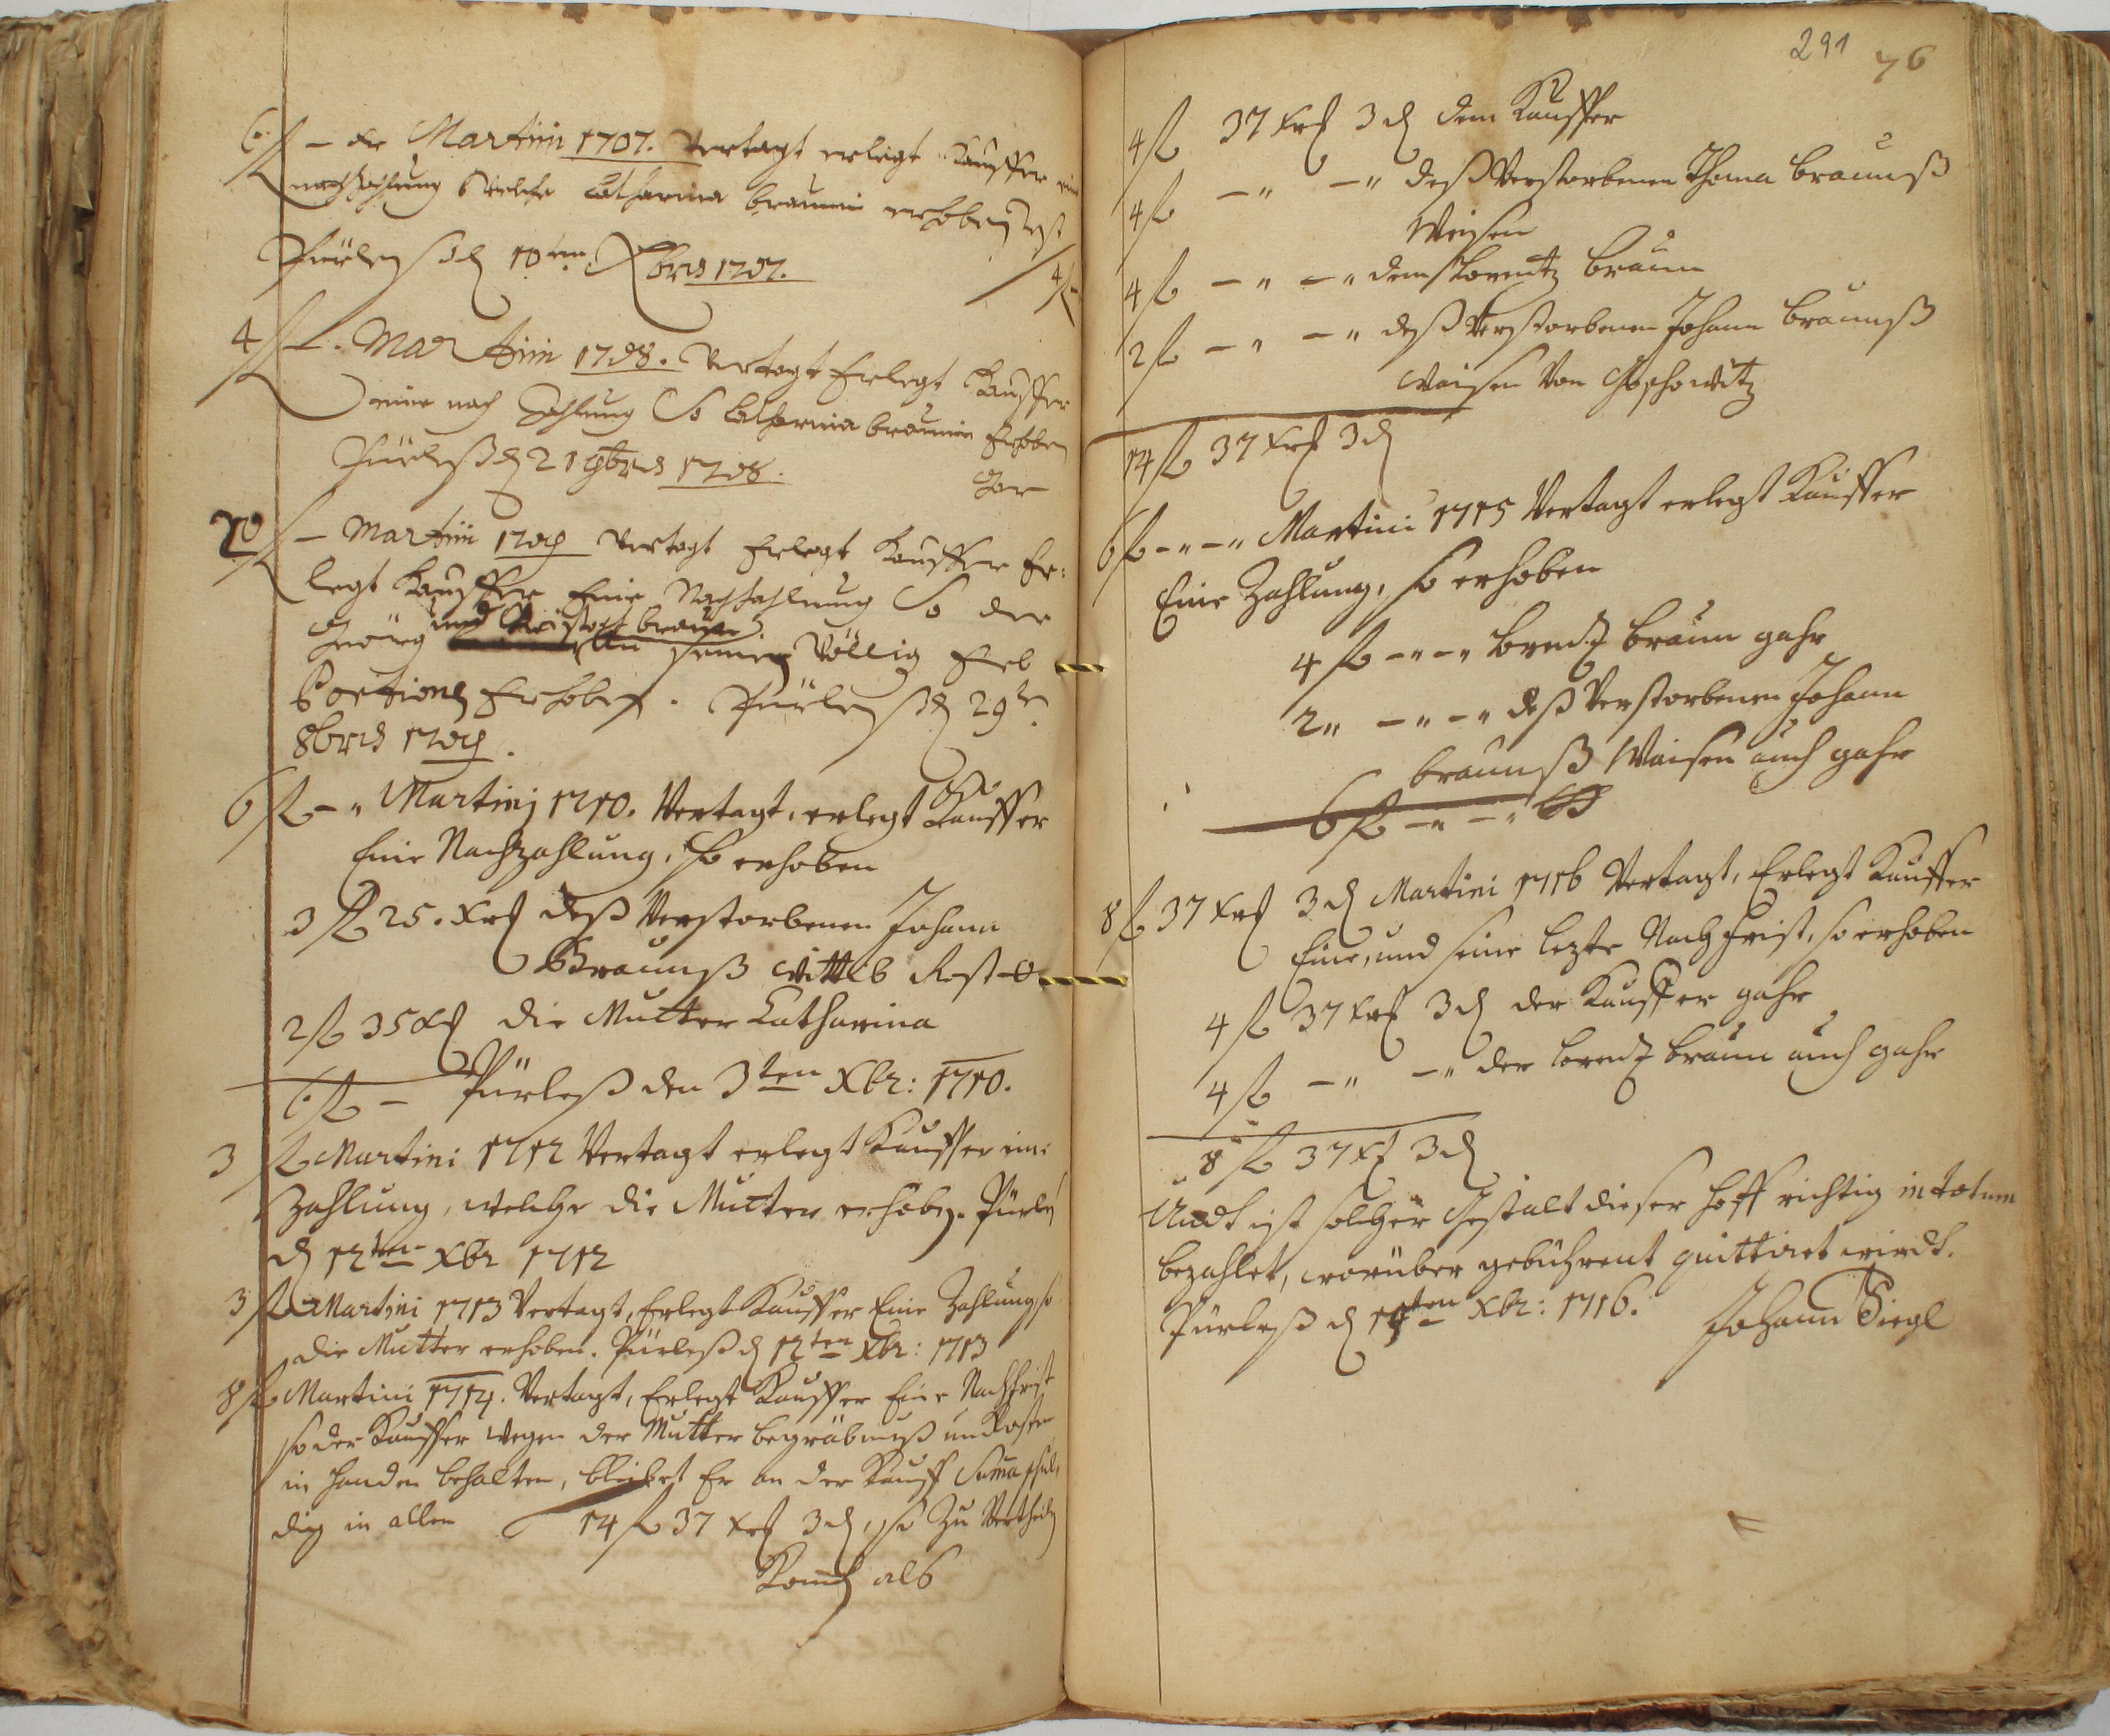 6 fl – xr Martini 1707. Vertagt erlegt Kauffer eine
nachzahlung Welche Catharina Braunin erhoben
Pürleß den 10ten Xbris 1707.
4 fl
4 fl – Martini 1708. Vertagt Erlegt Kauffer
eine nach Zahlung So Catharina Braunin Erhoben
Pürleß d 21 9bris 1708.
10 fl – Martini 1709 Vertagt Erlegt Kauffer Er:
legt Kauffer Eine Nachzahlung So der
und Christoph Braun
Geörg an seiner Völlig Erb
Portion Erhoben. Pürleß d 29te
8bris 1709.
6 fl – " Martinj 1710. Vertagt, erlegt Kauffer
Eine Nachzahlung, so erhoben
3 fl 25. xr deß Verstorbenen Johann
Braunß Wittib Rest
2 fl 35 xr die Mutter Catharina
6 fl – Pürleß den 3ten Xbr: 1710.
3 fl Martini 1712 Vertagt erlegt Kauffer ein:
Zahlung, welche die Mutter erhoben. Pürleß
d 12ten Xbr 1712
3 fl Martini 1713 Vertagt, Erlegt Kauffer Eine Zahlung, so
die Mutter erhoben. Pürleß d 12ten Xbr: 1713
8 fl Martini 1714. Vertagt, Erlegt Kauffer Eine Nachfrist
so der Kauffer wegen der Mutter begräbnuß unkosten
in handen behalten, bleibet Er an der Kauff Suma schul,
dig in allen 14 fl 37 xr 3 d, so Zu Vertheilen
Komen als
291 76
4 fl 37 xr 3 d dem Kauffer
4 fl – " – " deß Verstorbenen Thoma Braunß
Weisen
4 fl – " – " dem Lorentz Braun
2 fl – " – " deß Verstorbenen Johann Braunß
Waisen Von
14 fl 37 xr 3 d
6 fl – " – " Martini 1715 Vertagt erlegt Kauffer
Eine Zahlung, so erhoben
4 fl – " – " Lorentz Braun gahr
2 " – " – " deß Verstorbenen Johann
Braunß Waisen auch gahr
6 fl – " – "
8 fl 37 xr 3 d Martini 1716 Vertagt, Erlegt Kauffer
Eine, und seine lezte Nachfrist, so erhoben
4 fl 37 xr 3 d der Kauffer gahr
4 fl – " – " der Lorentz Braun auch gahr
8 fl 37 xr 3 d
Undt ist solcher Gestalt dieser Hoff richtig in totum
bezahlet, worüber gebührent quittiret wirdt.
Pürleß d 14ten Xbr: 1716. Johann Siegl